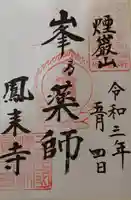 煙巖山
令和三年
五月四日
峯乃薬師
鳳来寺